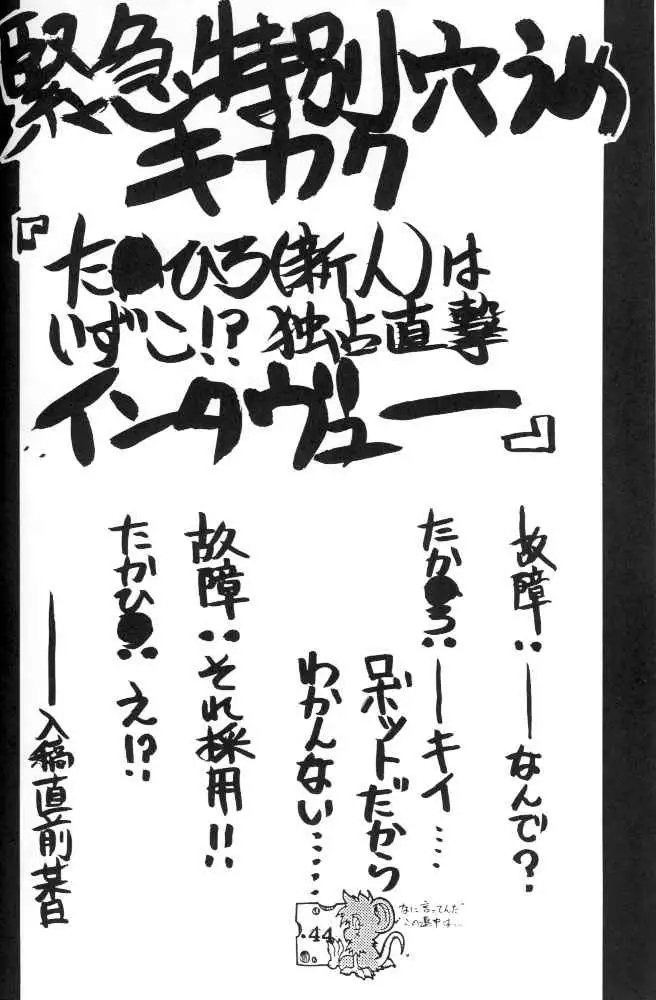 緊急特別穴うめ
キカク
『た●ひろ(新人)は
いずこ!?独占直撃
インタヴュー』
──故障:──なんで?
たか●ろ:──キイ‥‥
ロボットだから
わかんない‥‥‥
故障:それ採用!!
たかひ●:え!?
──入稿直前某日
なに言ってんだ
この連中は…
.44